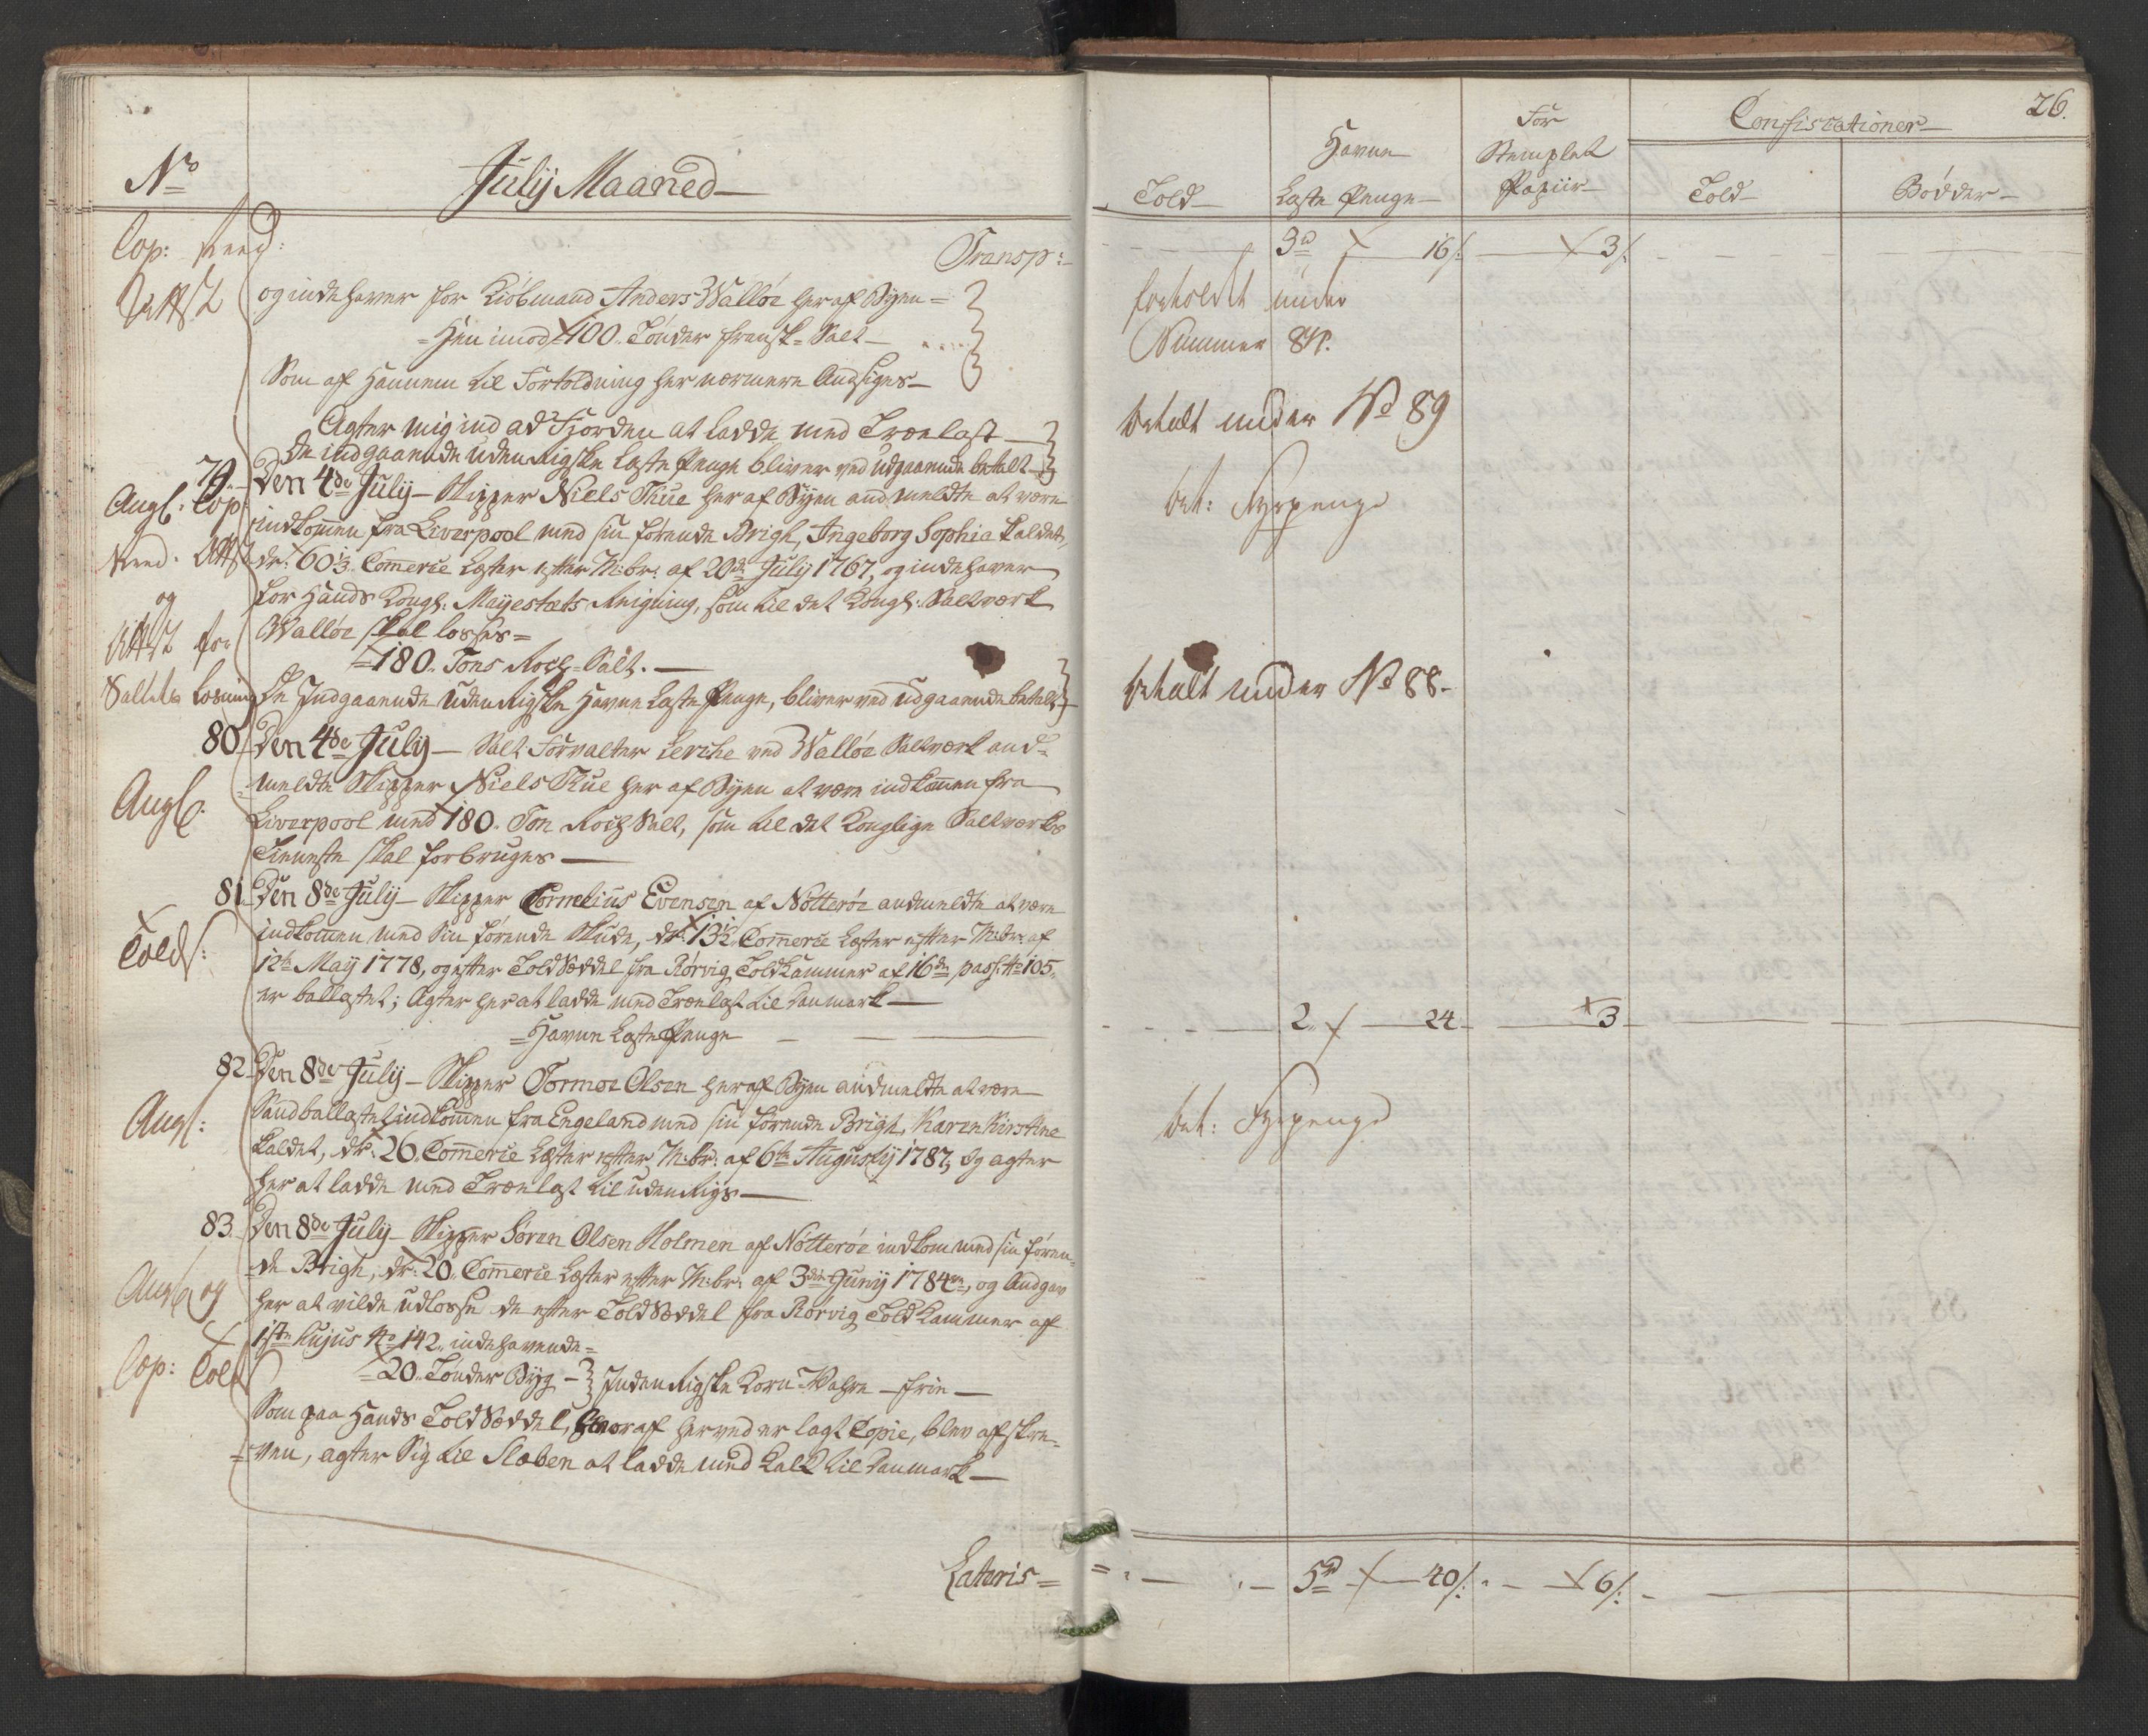 No
July Maaned
Transp:
Cop:
Attst
og indehaver for Kiøbmand Anders Walløe her af Byen =
= Hen imod 400. Tønder fransk Salt
Som af Hannem til Fortoldning her nærmere Andsiges
Agter mig ind ad Fjorden at ladde med Trælast
De indgaaende udenrigske Laste Penge bliver ved udgaaende betalt
79. Den 4de July Skipper Niels Thue her af Byen andmeldte at være
indkommen fra Liverpool med sin førende Brigh, Ingeborg Sophia kaldet,
dr: 60 1/3 Comerce Læster efter M:br: af 20de July 1767, og indehaver
for Hands Kongl: Mayestæts Reigning, som til det Kongl: Saltværk
Walløe skal losses =
= 180. Tons Rock-Salt.
De Indgaaende Udenrigske Havne Laste Penge, bliver ved udgaaende betalt
Angl: Cop
Attst
og
Attst for
Saltets Losning
80. Den 4de July Salt Forvalter Lerche ved Walløe Saltværk and=
=meldte Skipper Niels Thue her af Byen at være indkommen fra
Liverpool med 180. Ton Rock Salt, som til det Konglige Saltværks
Tieneste skal forbruges
Angl:
81. Den 8de July Skipper Cornelius Evensen af Nøtterøe andmeldte at være
indkommen med Sin førende Skude, dr: 13 1/2 Comerce Læster efter M:br: af
12te May 1778, og efter ToldSeddel fra Rørvig Toldkammer af 16de pass: No 105,
er ballastet; Agter her at ladde med Trælast til Danmark
= Havne Laste Penge
Tolds:
82. Den 8de July Skipper Tormoe Olsen her af Byen andmeldte at være
Sandballastet indkommen fra Engeland med sin førende Brigh, Karen Kirstine
kaldet, dr: 26. Comerce Læster efter M:br: af 6te Augusty 1787, og agter
her at ladde med Trælast til udenrigs
Angl:
83. Den 8de July Skipper Søren Olsen Holmen af Nøtterøe indkom med sin føren=
=de Brigh, dr: 20. Comerce Læster efter M:br: af 3die Juny 1784, og Andgav
her at vilde udlosse de efter ToldSeddel fra Rørvig Told Kammer af
1ste hujus No 142. indehavende =
= 20. Tønder Byg - Indenrigske Korn Wahre - frie
Som paa Hands ToldSeddel, hvoraf herved er lagt Copie, blev afskre=
=ven, agter Sig til Slæben at ladde med Kalk til Danmark
Angl: og
Cop: Tolds
Lateris =
26.
Told
Havne
Laste Penge
For
Stemplet
Papiir
Confiscationer
Told
Bødder
3 16 3
fortoldet under
Nummer 84.
betalt under No 89
bet: Fyrpenge
betalt under No 88.
2 24 3
bet: Fyrpenge
5 40 6